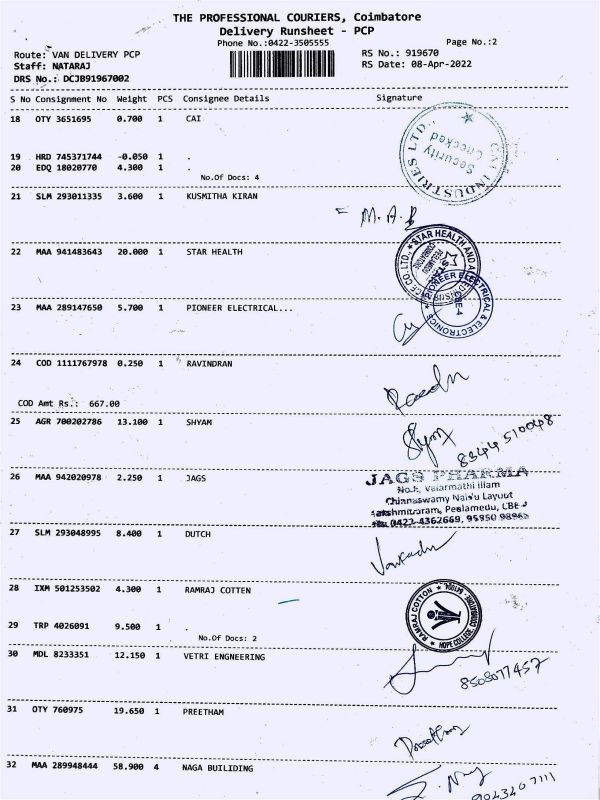 THE PROFESSIONAL COURIERS, Coimbatore
Delivery Runsheet - PCP
Phone No.:0422-3505555
Page No.:2
Route: VAN DELIVERY PCP
RS No.: 919670
Staff: NATARAJ
RS Date: 08-Apr-2022
DRS No.: DCJB91967002
S No Consignment No Weight PCS Consignee Details Signature
18 OTY 3651695 0.700 1 CAI
CAI INDUSTRIES LTD.,
Security
Checked
19 HRD 745371744 -0.050 1 .
20 EDQ 18020770 4.300 1 .
No.Of Docs: 4
21 SLM 293011335 3.600 1 KUSMITHA KIRAN
M.A.B
22 MAA 941483643 20.000 1 STAR HEALTH
STAR HEALTH AND
CE CO. LTD.
23 MAA 289147650 5.700 1 PIONEER ELECTRICAL...
PIONEER ELECTRICAL & ELECTRONICS
24 COD 1111767978 0.250 1 RAVINDRAN
COD Amt Rs.: 667.00
25 AGR 700202786 13.100 1 SHYAM
Shyam
8344510048
26 MAA 942020978 2.250 1 JAGS
JAGS PHARMA
Valarmathi Illam
Chinnaswamy Naidu Layout
Peelamedu, CBE-
0422-4362669,
27 SLM 293048995 8.400 1 DUTCH
28 IXM 501253502 4.300 1 RAMRAJ COTTEN
RAMRAJ COTTON
HOPE COLLEGE, COIMBATORE
29 TRP 4026091 9.500 1 .
No.Of Docs: 2
30 MDL 8233351 12.150 1 VETRI ENGNEERING
8508077457
31 OTY 760975 19.650 1 PREETHAM
32 MAA 289948444 58.900 4 NAGA BUILIDING
9043407111